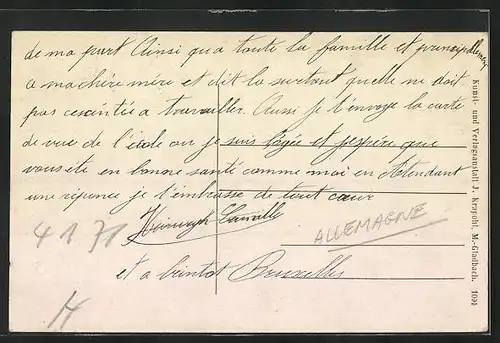 de ma part Ainsi qua toute la famille et principallement
a ma chère mère et dit la surtout quelle ne doit
pas a travailler. Aussi je t'envoye la carte
de vue de l'école ou je suis logée et jespère que
vous ete en bonne santé comme moi en Attendant
une reponce je t'embrasse de tout cœur
ALLEMAGNE
41 71
et a bientot Bruxelles
M
Kunst- und Verlagsanstalt J. Krapohl, M.-Gladbach. 1094